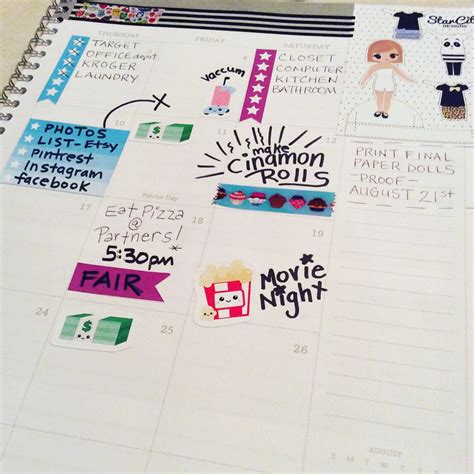 FRIDAY
SATURDAY
TARGET
OFFICE depot
KROGER
LAUNDRY
4
Vaccum
CLOSET
COMPUTER
KITCHEN
BATHROOM
StarCit
DESIGNS
PHOTOS
LIST-Etsy
Pintrest
Instagram
facebook
10
11
12
make
Cinamon
ROLLS
PRINT FINAL
PAPER DOLLS
-PROOF-
AUGUST 21st
Patriot Day
17
18
19
Eat Pizza
@
Partners!
5:30pm
FAIR
Movie
Night
24
25
26
AUGUST
S M T W T F S